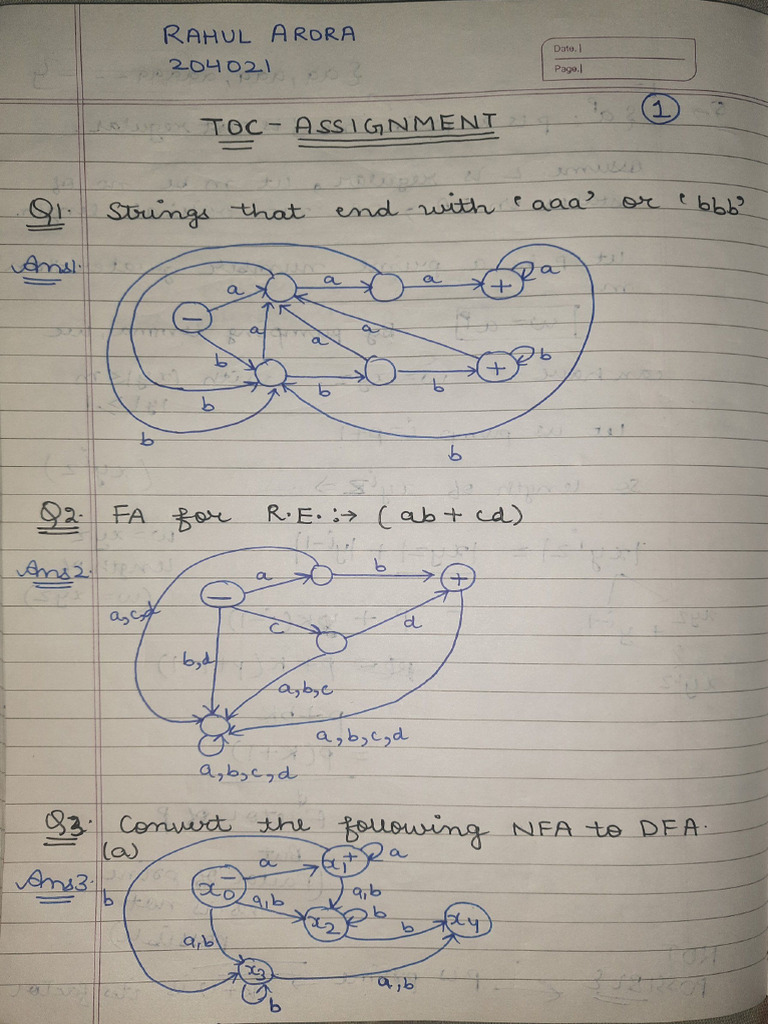 RAHUL ARORA
204021
Date.
Page.
1
TOC - ASSIGNMENT
Q1. Strings that end with 'aaa' or 'bbb'
Ans1.
a a a a
- +
a a a
b b b b
+
b b b
Q2. FA for R.E. :→ (ab + cd)
Ans2.
a b
- +
a,c,d c d
b,d
a,b,c
a,b,c,d
a,b,c,d
Q3. Convert the following NFA to DFA.
(a)
Ans3.
a x1+ a
x0-
b a,b a,b
x2 b b x4
a,b
x3 a,b
b